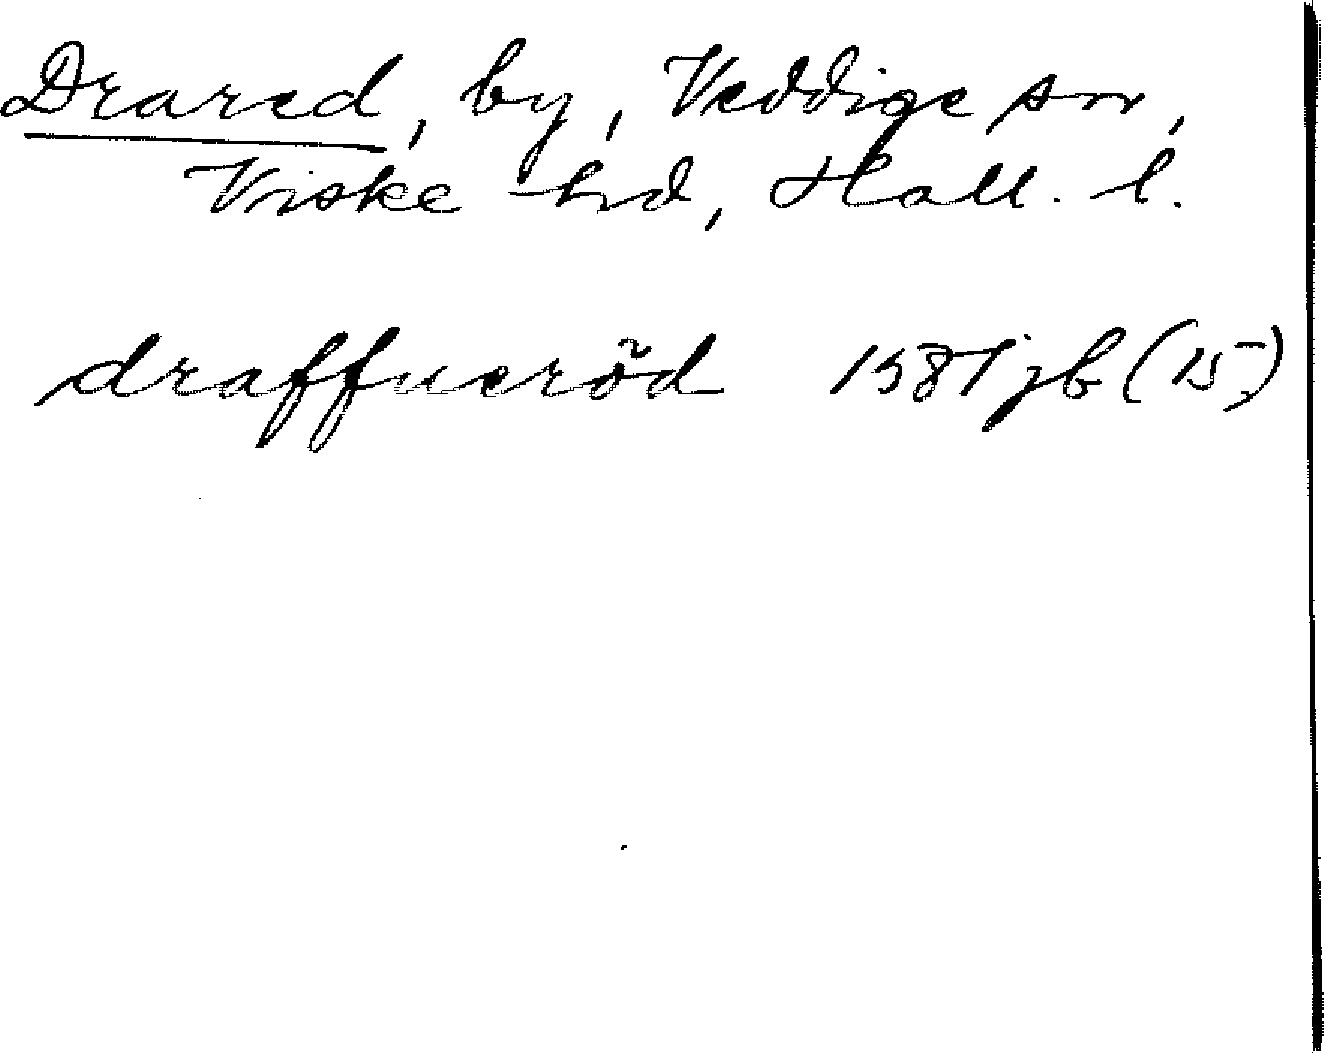 Drared, by, Veddige sn,
Viske hd, Hall. l.
draffuerőd 1581 jb (15)